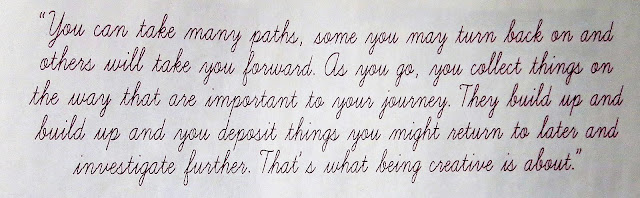 “You can take many paths, some you may turn back on and
others will take you forward. As you go, you collect things on
the way that are important to your journey. They build up and
build up and you deposit things you might return to later and
investigate further. That's what being creative is about.”